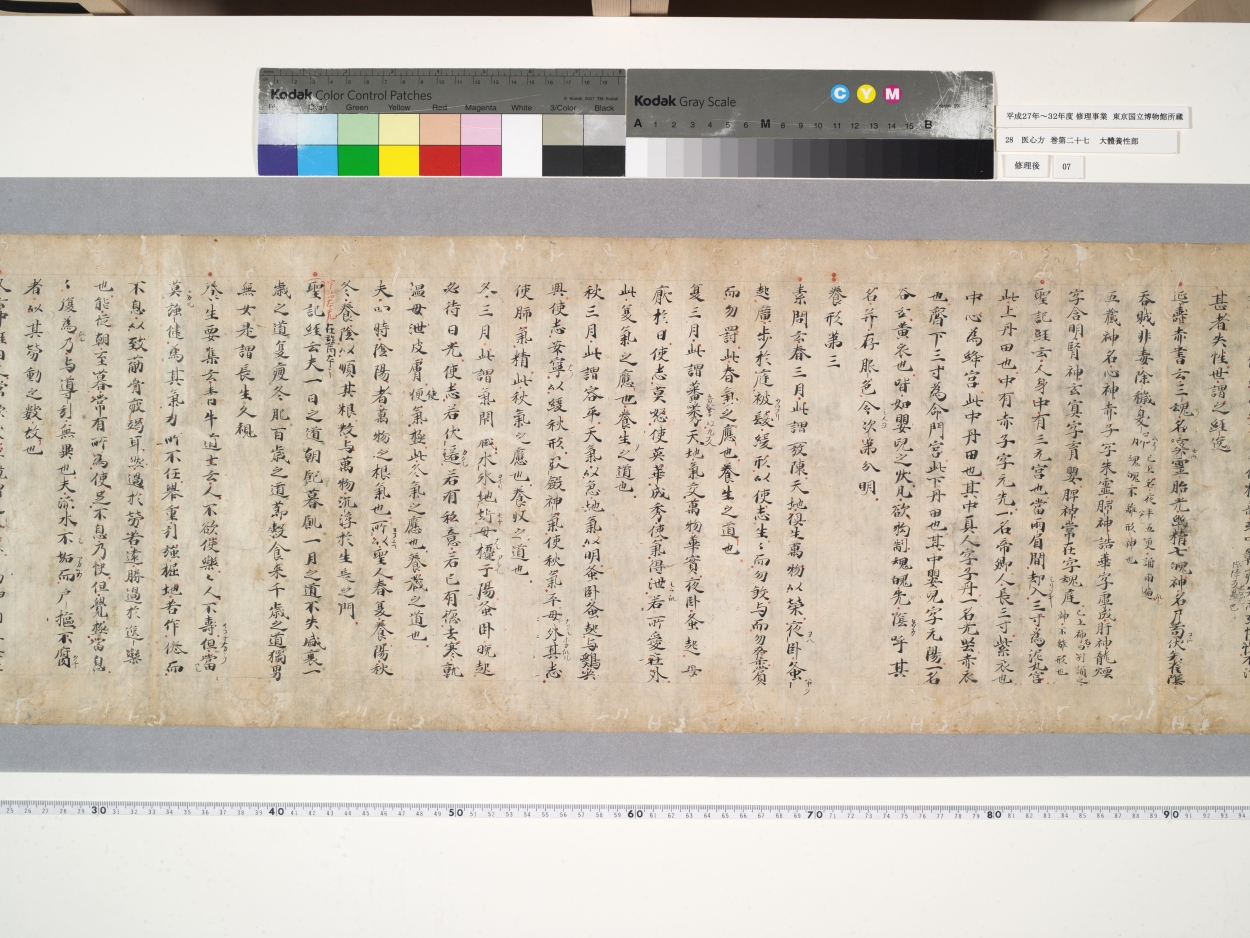 Kodak Color Control Patches
© Kodak, 2007 TM: Kodak
Cyan Green Yellow Red Magenta White 3/Color Black
Kodak Gray Scale
C Y M
A 1 2 3 4 5 6 M 8 9 10 11 12 13 14 15 B
平成27年～32年度 修理事業 東京国立博物館所蔵
28 医心方 巻第二十七 大體養性部
修理後 07
甚者失性世謂之経逆
延壽赤書云三魂名爽霊胎光幽精七魄神名尸苟次
吞賊非毒除穢臭肺
五蔵神名心神赤子字朱霊肺神誥華字虚成肝神龍烟
字含明腎神玄冥字育嬰脾神常在字魂庭
聖記経云人身中有三元宮也當兩眉間却入三寸為泥丸宮
此上丹田也中有赤子字元先一名帝卿人長三寸紫衣也
中心為絳宮此中丹田也其中真人字子丹一名光堅赤衣
也齊下三寸為命門宮此下丹田也其中嬰兒字元陽一名
谷玄黄衣也皆如嬰兒之状凡欲拘制魂魄先陰呼其
名并存服色令次第分明
養形第三
素問云春三月此謂發陳天地俱生萬物以榮夜臥蚤
起廣步於庭被髪緩形以使志生々而勿煞与而勿奪賞
而勿罰此春氣之應也養生之道也
夏三月此謂蕃秀天地氣交萬物華實夜臥蚤起毋
厭於日使志莫怒使英華成秀使氣得泄若所愛在外
此夏氣之應也養生之道也
秋三月此謂容平天氣以急地氣以明蚤臥蚤起与鷄
興使志安寧以緩秋形収斂神氣使秋氣平毋外其志
使肺氣精此秋氣之應也養収之道也
冬三月此謂氣閇蔵水氷地坼毋擾于陽蚤臥晩起
必待日光使志若伏匿若有私意若已有德去寒就
温毋泄皮膚使氣極此冬氣之應也養蔵之道也
夫四時陰陽者萬物之根氣也所以聖人春夏養陽秋
冬養陰以順其根故与萬物沉浮於生長之門
聖記経云夫一日之道朝飽暮飢一月之道不失盛衰一
歳之道夏瘦冬肥百歳之道節穀食米千歳之道獨男
無女是謂長生久視
養生要集云青牛道士云人不欲使樂々人不壽但當
莫強健為其氣力所不任舉重引強掘地苦作倦而
不息以致筋骨疲竭耳然過於勞苦遠勝過於逸樂
也能從朝至暮常有所為使足不息乃快但覺極當息
々復為乃与導引無異也夫流水不垢而戸樞不腐
者以其勞動之數故也